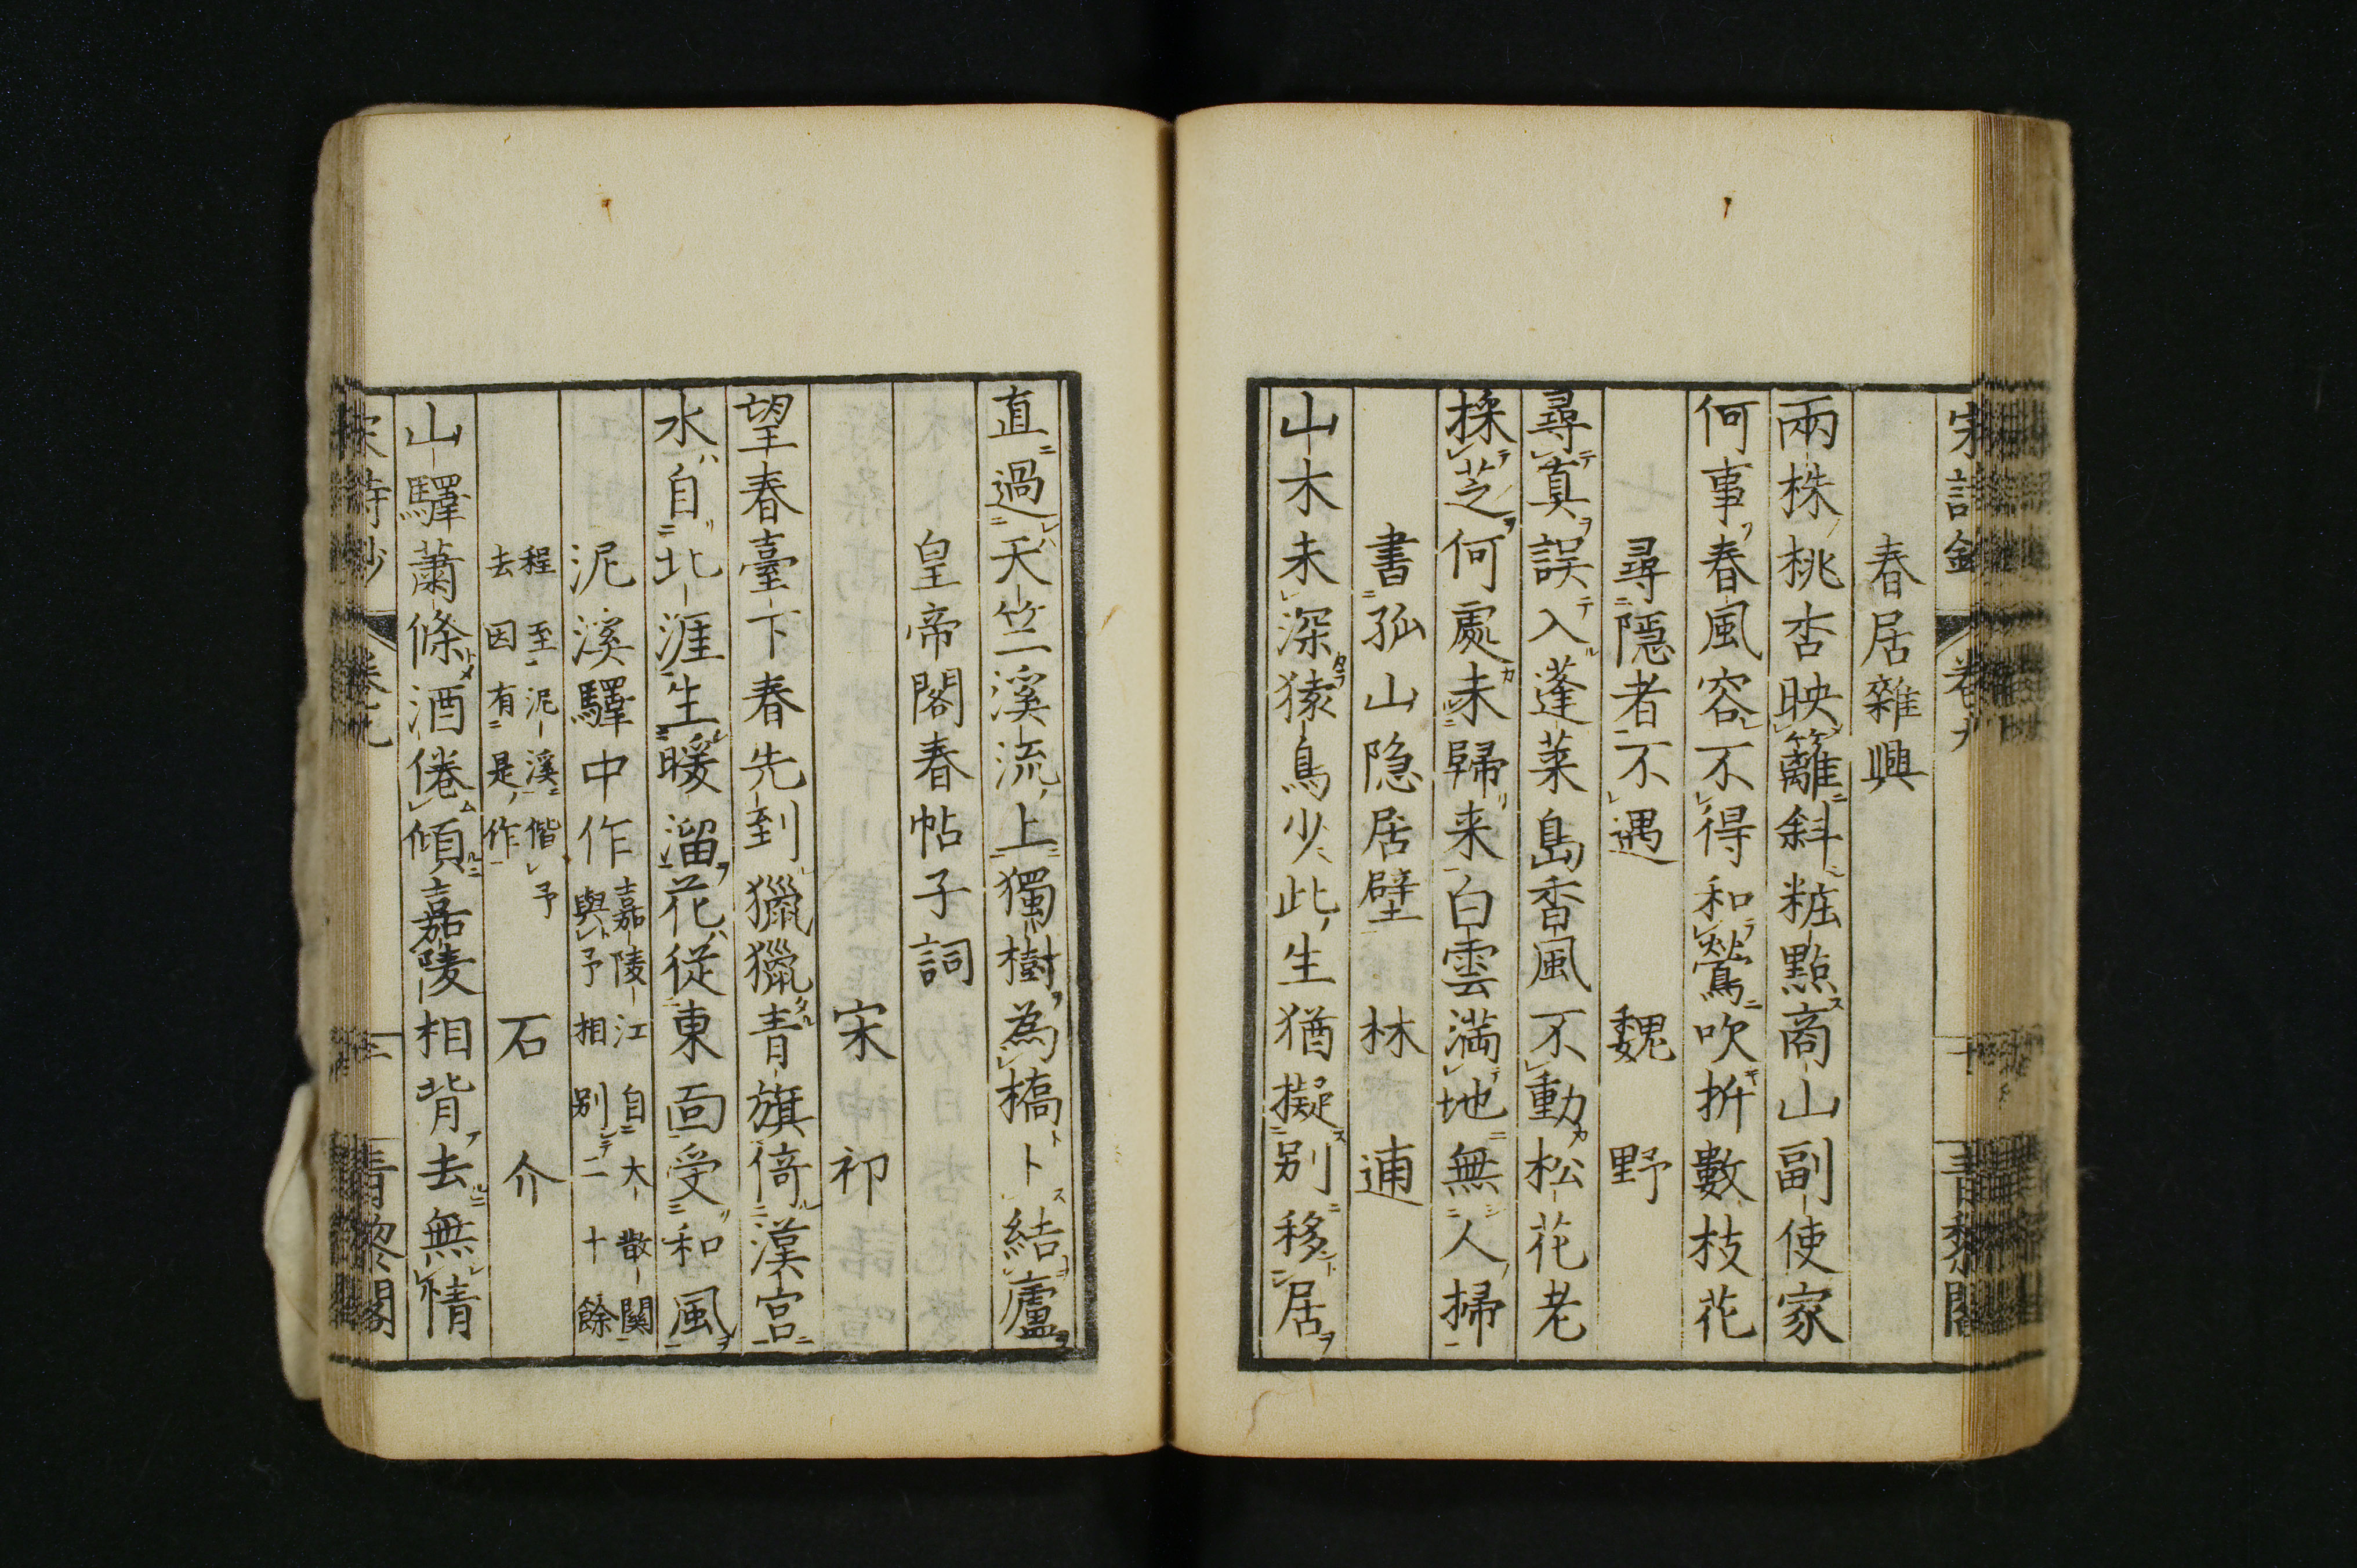 春居雜興
兩株桃杏映籬斜粧點商山副使家
何事春風容不得和鶯吹折數枝花
尋隱者不遇　魏野
尋真誤入蓬莱島香風不動松花老
採芝何處未歸来白雲満地無人掃
書孤山隐居壁　林逋
山木未深猿鳥少此生猶擬别移居
直過天竺溪流上獨樹為橋卜結廬
皇帝閣春帖子詞
宋祁
望春臺下春先到獵獵青旗倚漢宫
水自北涯生暖溜花従東面受和風
泥溪驛中作 嘉陵江自大散關
與予相别二十餘
程至泥溪偕予
去因有是作　石介
山驛蕭條酒倦傾嘉陵相背去無情